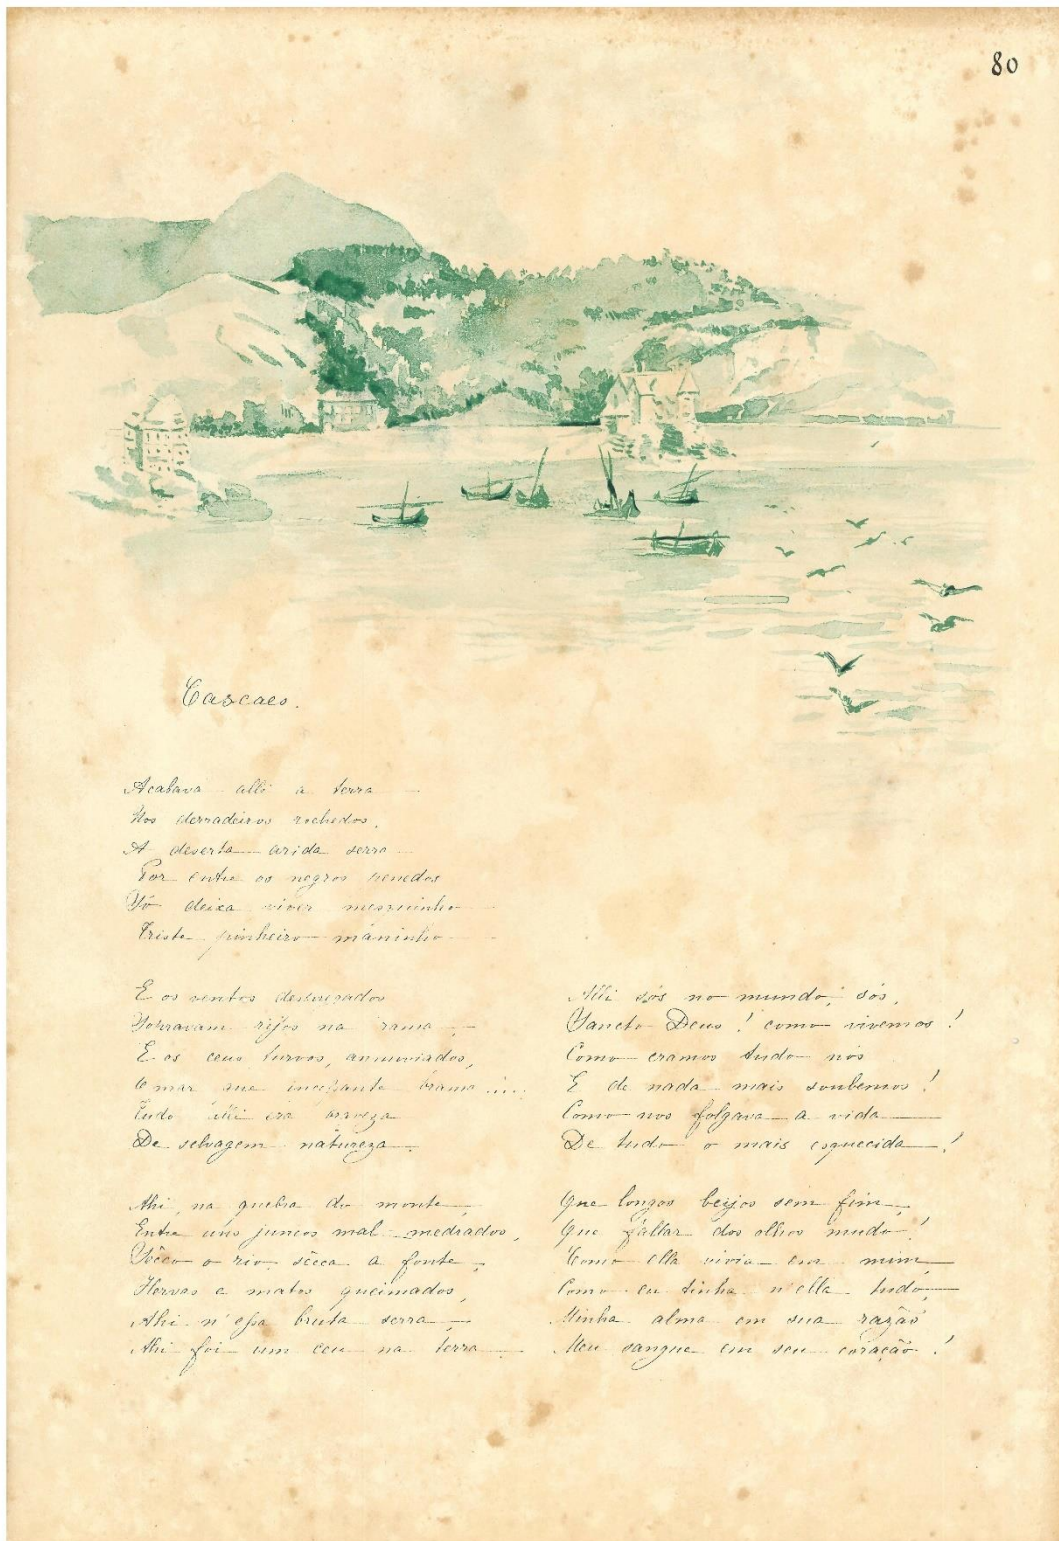 80
Cascaes.
Acabava alli a terra
Nos derradeiros rochedos,
A deserta arida serra
Por entre os negros penedos
Só deixa viver mesquinho
Triste pinheiro maninho
E os ventos despregados
Sopravam rijos na rama,
E os ceus turvos, annuviados,
O mar que incessante brama....
Tudo alli era braveza
De selvagem natureza.
Ahi, na quebra do monte,
Entre uns juncos mal medrados,
Sêcco o rio, sêcca a fonte,
Hervas e matos queimados,
Ahi n'essa bruta serra,
Ahi foi um ceu na terra
Alli sós no mundo, sós,
Sancto Deus! como vivemos!
Como eramos tudo nós
E de nada mais soubemos!
Como nos folgava a vida
De tudo o mais esquecida!
Que longos beijos sem fim,
Que fallar dos olhos mudo!
Como ella vivia em mim,
Como eu tinha n'ella tudo,
Minha alma em sua razão
Meu sangue em seu coração!